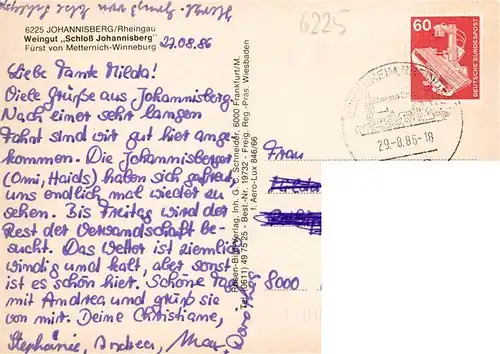 6225
6225 JOHANNISBERG/Rheingau
Weingut „Schloß Johannisberg"
Fürst von Metternich-Winneburg
27.08.86
60
DEUTSCHE BUNDESPOST
29.-8.86-18
Liebe Tante Hilda!
Viele Grüße aus Johannisberg.
Nach einer sehr langen
Fahrt sind wir gut hier ange
kommen. Die Johannisberger
(Omi, Haids) haben sich gefreut
uns endlich mal wieder zu
sehen. Bis Freitag wird der
Rest der Verwandschaft be-
sucht. Das Wetter ist ziemlich
windig und kalt, aber sonst
ist es schön hier. Schöne Tage
mit Andrea und grüß sie
von mir. Deine Christiane,
Stephanie, Andreas, Max, Dorothea
Rosen-Bild-Verlag, Inh. G. u. C. Schneider, 6000 Frankfurt/M.
Tel. (0611) 49 75 25 - Best.-Nr. 19732 - Freig. Reg.-Präs. Wiesbaden
f. Aero-Lux 846/66
Frau
8000